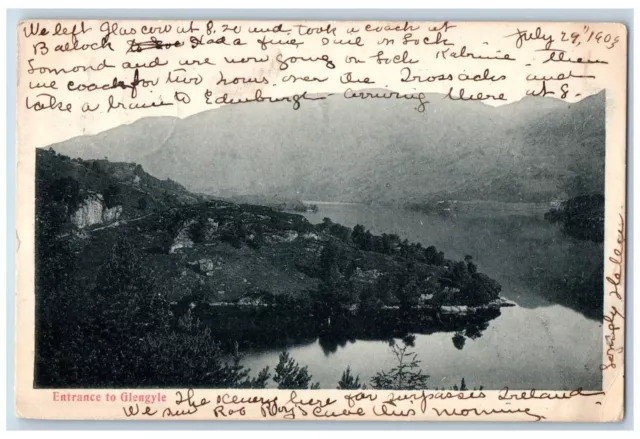 We left Glasgow at 8.20 and took a coach at July 29" 1903
Balloch Had a fine sail on Loch
Lomond and are now going on Loch Katrine. then
we coach for two hours over the Trossachs and
take a train to Edinburgh - arriving there at 8.
Lovingly Helen
Entrance to Glengyle
The scenery here far surpasses Ireland
We saw Rob Roy's Cave this morning